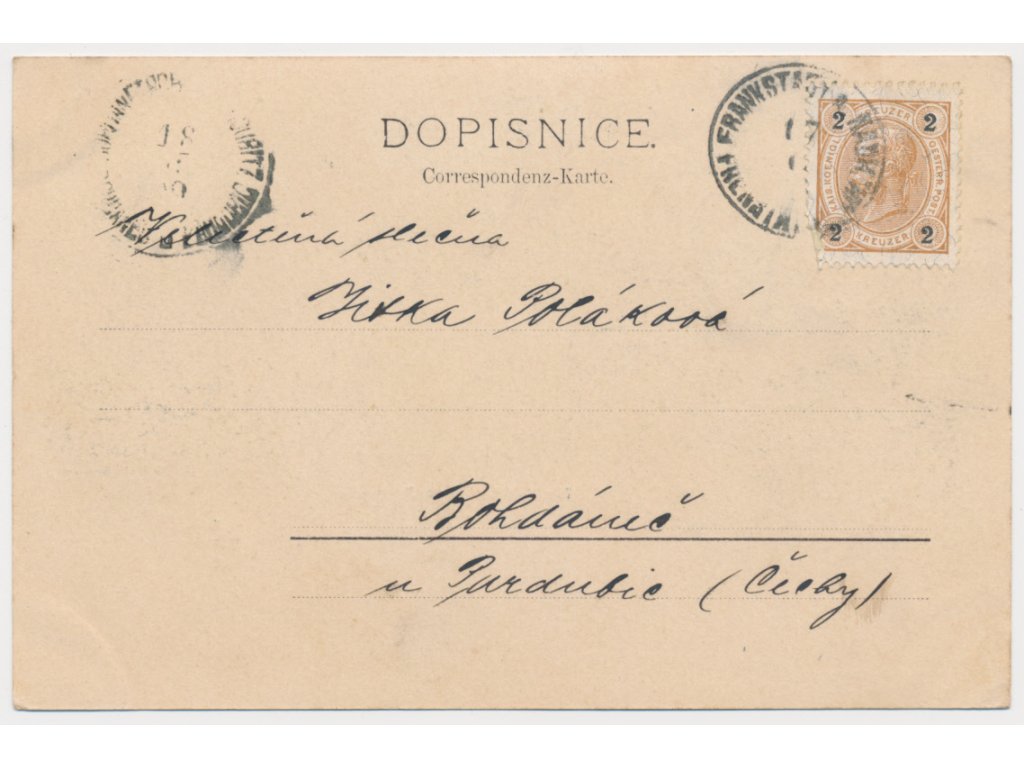 DOPISNICE.
Correspondenz-Karte.
FRANKSTADT
2 KREUZER 2
KAIS. KOENIGL. OESTERR. POST.
2 KREUZER 2
slečna
Jitka Poláková
Bohdáneč
u Pardubic (Čechy)